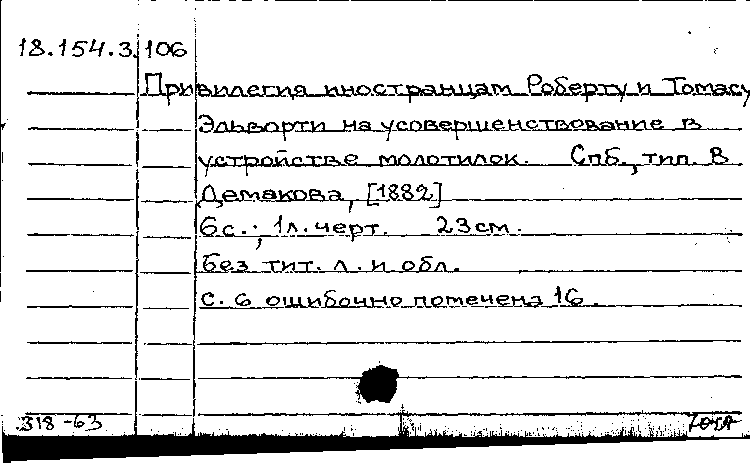 18.154.3.106
Привилегия иностранцам Роберту и Томасу
Эльворти на усовершенствование в
устройстве молотилок. Спб., тип. В
Демакова, [1882]
6 с.; 1 л. черт. 23 см.
Без тит. л. и обл.
С. 6 ошибочно помечена 16.
318-63